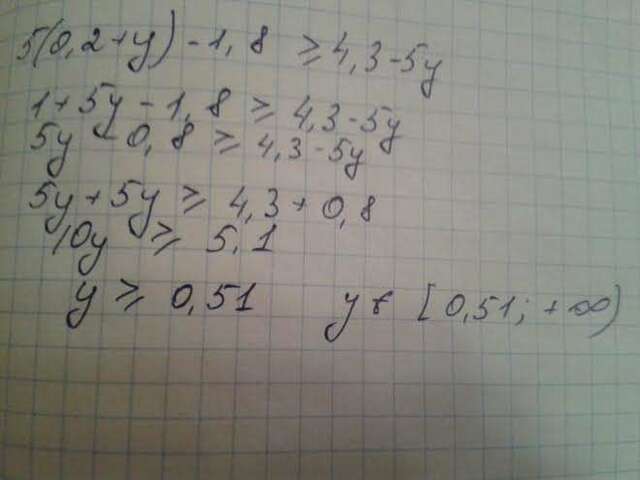 5(0,2+y) - 1,8 ≥ 4,3 - 5y
1 + 5y - 1,8 ≥ 4,3 - 5y
5y - 0,8 ≥ 4,3 - 5y
5y + 5y ≥ 4,3 + 0,8
10y ≥ 5,1
y ≥ 0,51 y ∈ [0,51; +∞)